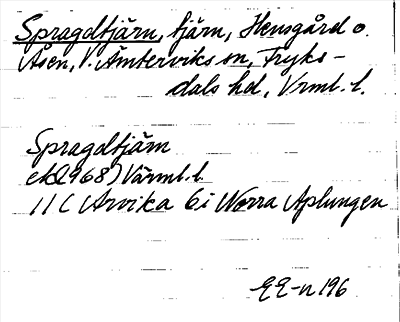 Spragdtjärn, tjärn, Hensgård o.
Åsen, V. Ämterviks sn, Fryks-
dals hd, Vrml. l.
Spragdtjärn
ek(1968) Värml. l.
11C Arvika 6i Norra Aplungen
EE-n 196